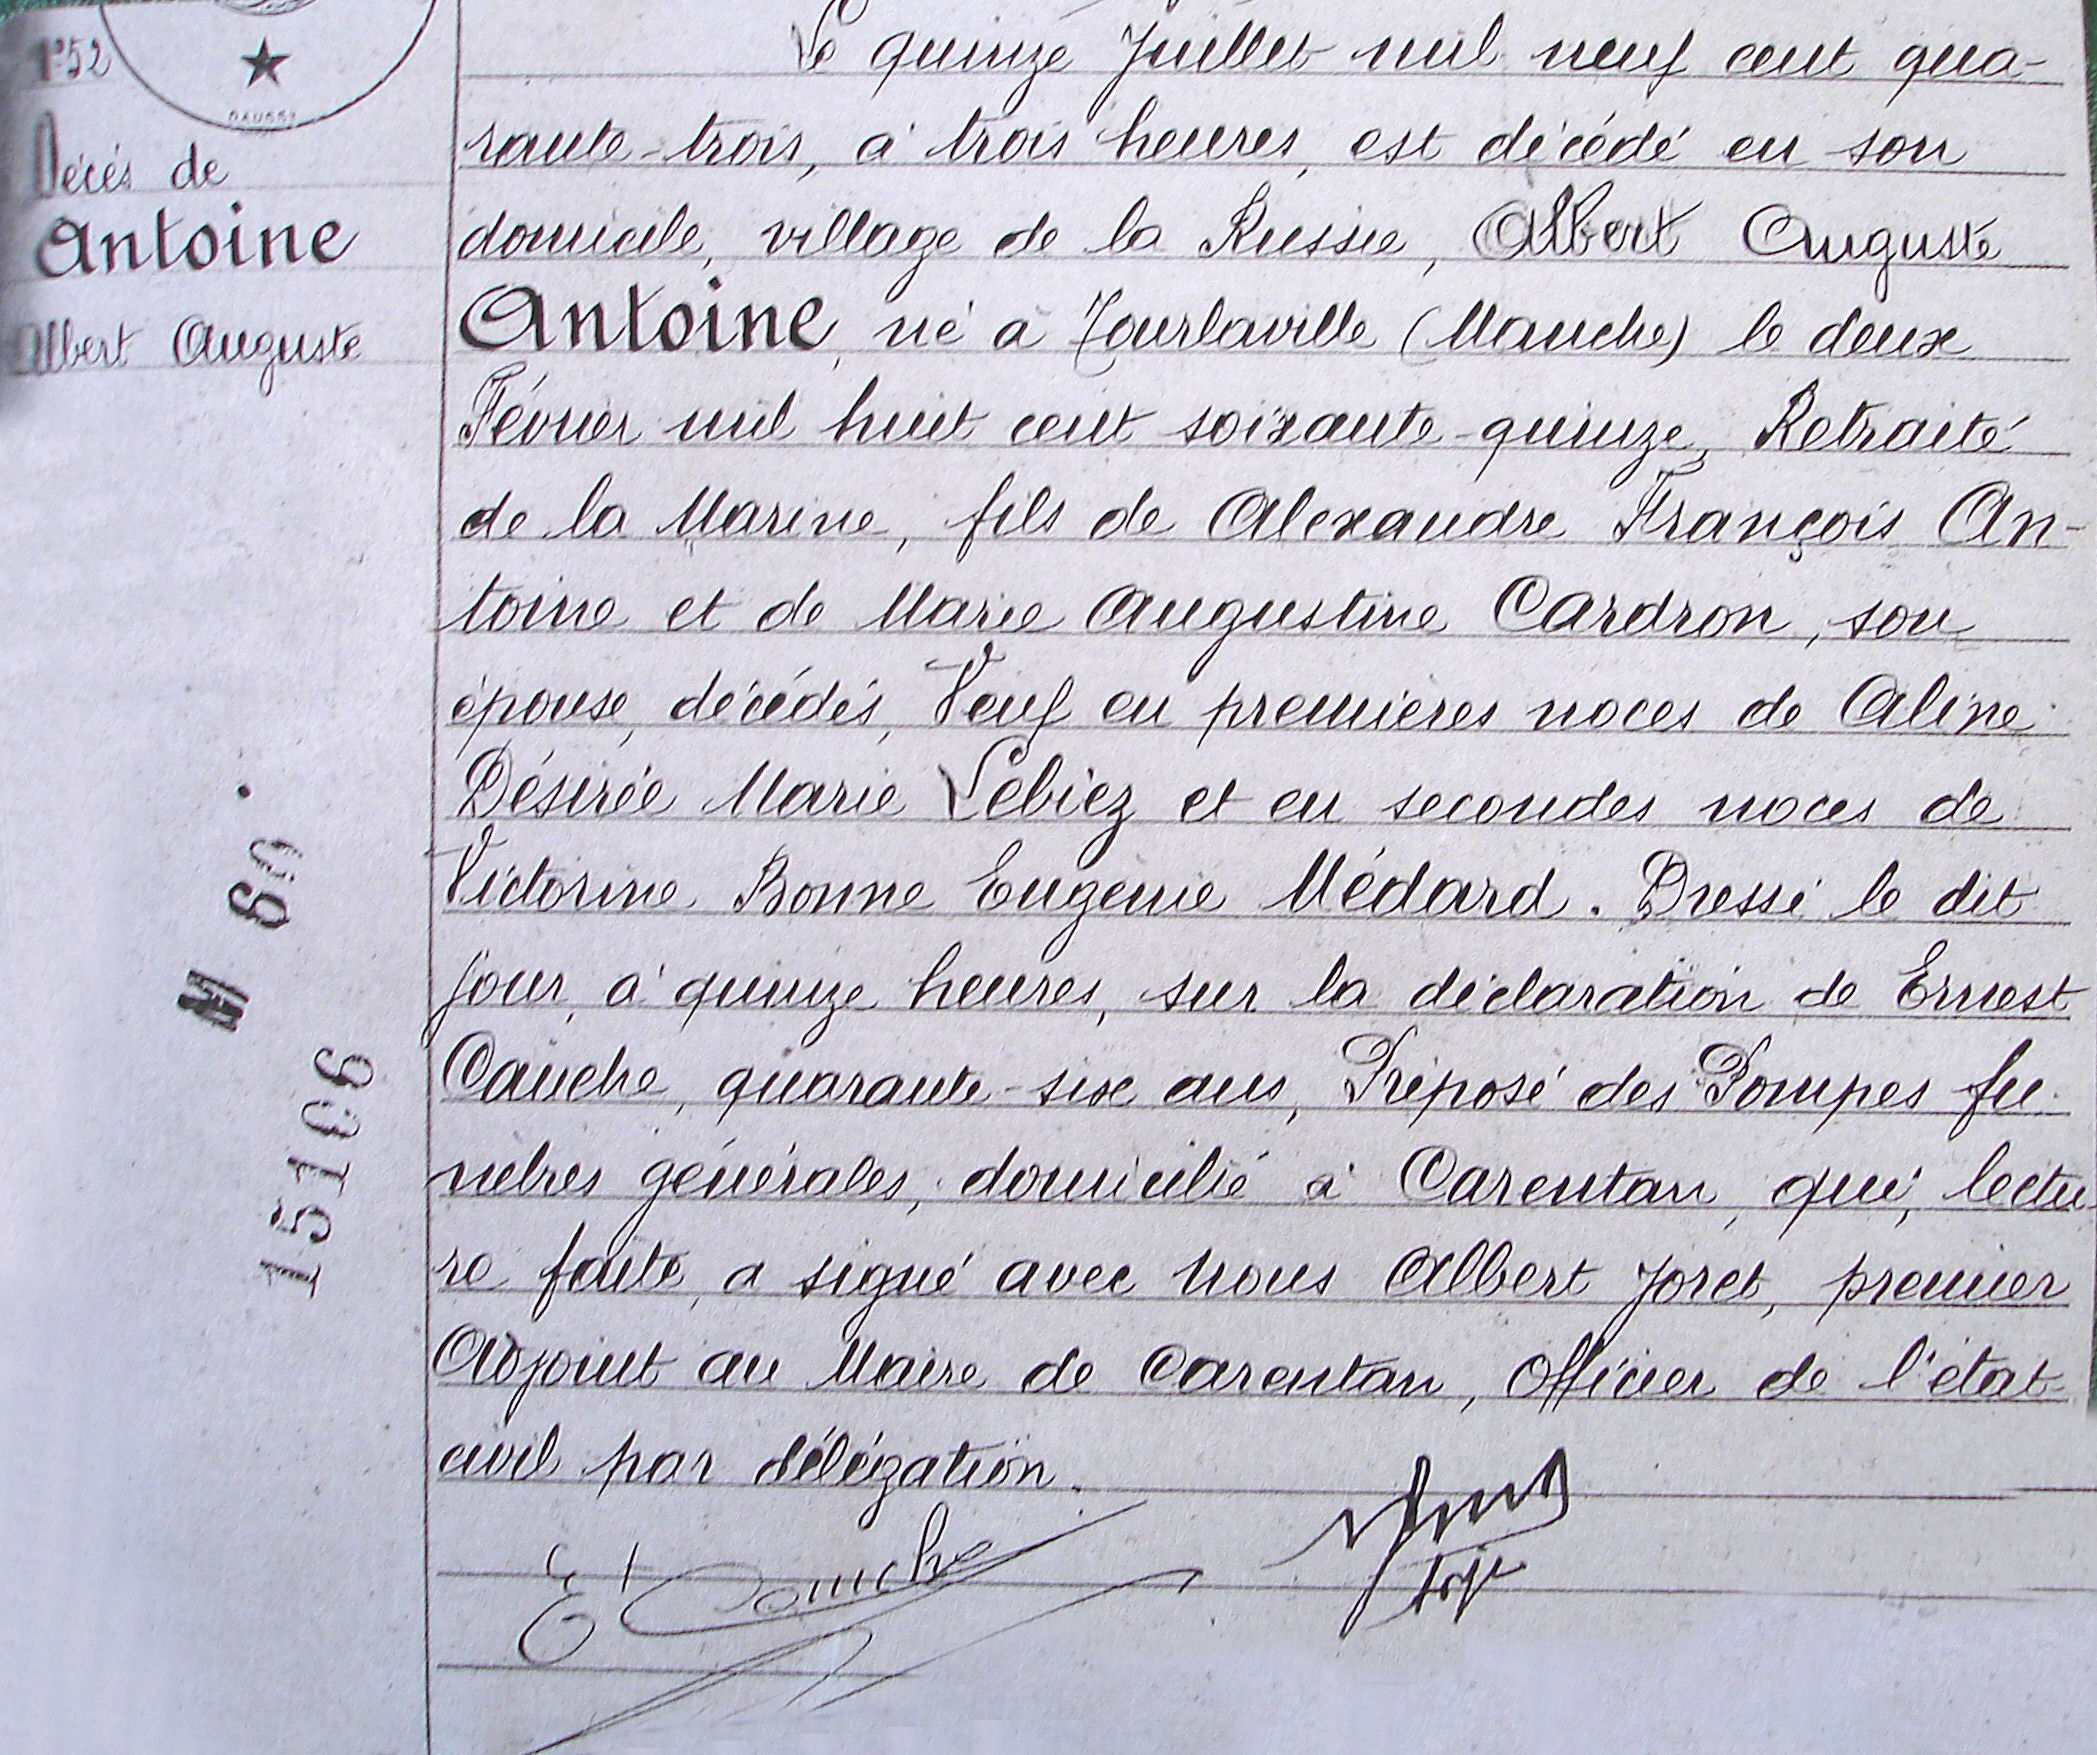 N°52
DAUSSY
Décès de
Antoine
Albert Auguste
Le quinze Juillet mil neuf cent qua-
rante-trois, à trois heures, est décédé en son
domicile, village de la Russie, Albert Auguste
Antoine, né à Tourlaville (Manche) le deux
Février mil huit cent soixante-quinze, Retraité
de la Marine, fils de Alexandre François An-
toine et de Marie Augustine Cardron, son
épouse, décédés, Veuf en premières noces de Aline
Désirée Marie Lebiez et en secondes noces de
Victorine Bonne Eugénie Médard. Dressé le dit
jour, à quinze heures, sur la déclaration de Ernest
Cauche, quarante-six ans, Préposé des Pompes fu-
nèbres générales, domicilié à Carentan, qui, lectu-
re faite, a signé avec Nous Albert Joret, premier
Adjoint au Maire de Carentan, Officier de l'état-
civil par délégation.
E Cauche
15106